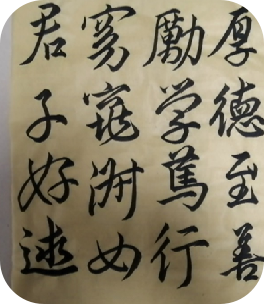 厚德至善
勵学篤行
窈窕淑女
君子好逑